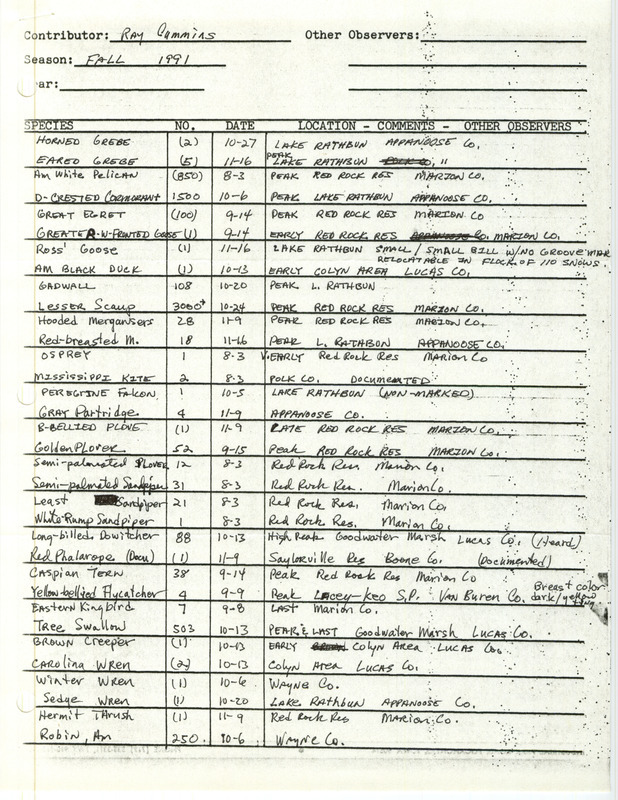 Contributor: Ray Cummins Other Observers:
Season: FALL 1991
ar:
SPECIES NO. DATE LOCATION - COMMENTS - OTHER OBSERVERS
HORNED GREBE (2) 10-27 LAKE RATHBUN APPANOOSE Co.
EARED GREBE (5) 11-16 PEAK LAKE RATHBUN "
Am White Pelican (850) 8-3 PEAK RED ROCK RES MARION Co.
D-CRESTED CORMORANT 1500 10-6 PEAK LAKE RATHBUN APPANOOSE Co.
GREAT EGRET (100) 9-14 PEAK RED ROCK RES MARION Co
GREATER W-FRONTED GOOSE (1) 9-14 EARLY RED ROCK RES MARION Co.
Ross' Goose (1) 11-16 LAKE RATHBUN SMALL / SMALL BILL W/NO GROOVE MARK
RELOCATABLE IN FLOCK OF 110 SNOWS.
AM BLACK DUCK (1) 10-13 EARLY COLYN AREA LUCAS Co.
GADWALL 108 10-20 PEAK L. RATHBUN
LESSER Scaup 3000+ 10-24 PEAK RED ROCK RES MARION Co.
Hooded Mergansers 28 11-9 PEAK RED ROCK RES MARION Co.
Red-breasted M. 18 11-16 PEAK L. RATHBUN APPANOOSE Co.
OSPREY 1 8-3 V. EARLY Red Rock Res Marion Co
MISSISSIPPI KITE 2 8-3 POLK CO. DOCUMENTED
PEREGRINE FALCON 1 10-5 LAKE RATHBUN (NON-MARKED)
GRAY Partridge 4 11-9 APPANOOSE CO.
B-BELLIED PLOVE (1) 11-9 LATE RED ROCK RES MARION Co.
Golden Plover 52 9-15 Peak RED ROCK RES MARION Co.
Semi-palmated PLOVER 12 8-3 Red Rock Res. Marion Co.
Semi-palmated Sandpiper 31 8-3 Red Rock Res. Marion Co.
Least Sandpiper 21 8-3 Red Rock Res. Marion Co.
White-Rump Sandpiper 1 8-3 Red Rock Res. Marion Co.
Long-billed Dowitcher 88 10-13 High Peak Goodwater Marsh Lucas Co. (Heard)
Red Phalarope (Docu) (1) 11-9 Saylorville Res Boone Co. (Documented)
CASPIAN TERN 38 9-14 Peak Red Rock Res Marion Co
Yellow-bellied Flycatcher 4 9-9 Peak Lacey-Keo S.P. Van Buren Co. Breast color dark/yellow
Eastern Kingbird 7 9-8 LAST Marion Co.
Tree Swallow 503 10-13 PEAK & LAST Goodwater Marsh LUCAS Co.
BROWN Creeper (1) 10-13 EARLY COLYN AREA LUCAS Co.
CAROLINA WREN (2) 10-13 Colyn Area LUCAS Co.
Winter Wren (1) 10-6 WAYNE Co.
Sedge Wren (1) 10-20 Lake Rathbun APPANOOSE Co.
Hermit Thrush (1) 11-9 Red Rock Res Marion Co.
Robin, Am 250 10-6 Wayne Co.